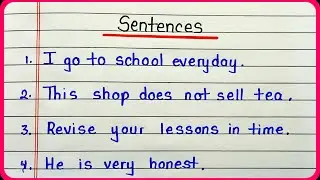 Sentences
1. I go to school everyday.
2. This shop does not sell tea.
3. Revise your lessons in time.
4. He is very honest.